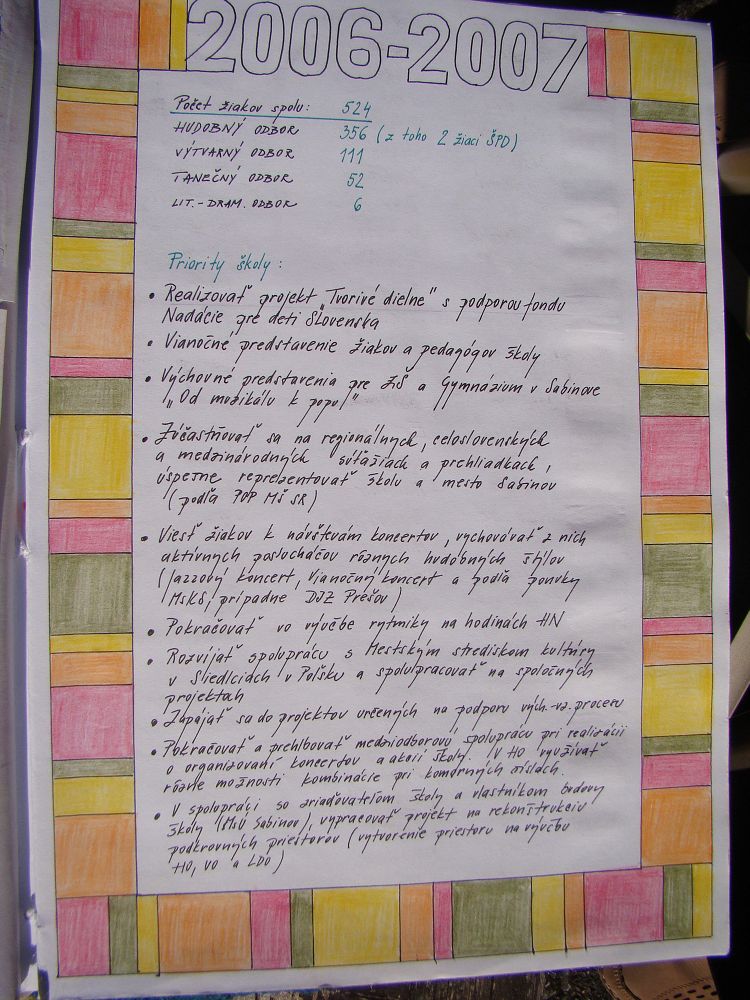 2006-2007
Počet žiakov spolu: 524
HUDOBNÝ ODBOR 356 (z toho 2 žiaci ŠPD)
VÝTVARNÝ ODBOR 111
TANEČNÝ ODBOR 52
LIT.-DRAM. ODBOR 6
Priority školy:
• Realizovať projekt „Tvorivé dielne" s podporou fondu
Nadácie pre deti Slovenska
• Vianočné predstavenie žiakov a pedagógov školy
• Výchovné predstavenia pre ZŠ a Gymnázium v Sabinove
(„Od muzikálu k popu)"
• Zúčastňovať sa na regionálnych, celoslovenských
a medzinárodných súťažiach a prehliadkach,
úspešne reprezentovať školu a mesto Sabinov
(podľa POP MŠ SR)
• Viesť žiakov k návštevám koncertov, vychovávať z nich
aktívnych poslucháčov rôznych hudobných štýlov
(Jazzový koncert, Vianočný koncert a podľa ponuky
MsKS, prípadne DJZ Prešov)
• Pokračovať vo výučbe rytmiky na hodinách HN
• Rozvíjať spoluprácu s Mestským strediskom kultúry
v Siedlciach v Poľsku a spolupracovať na spoločných
projektoch
• Zapájať sa do projektov určených na podporu vých.-vz. procesu
• Pokračovať a prehlbovať medziodborovú spoluprácu pri realizácii
a organizovaní koncertov a akcií školy. V HO využívať
rôzne možnosti kombinácie pri komorných číslach.
• V spolupráci so zriaďovateľom školy a vlastníkom budovy
školy (MsÚ Sabinov), vypracovať projekt na rekonštrukciu
podkrovných priestorov (vytvorenie priestoru na výučbu
HO, VO a LDO)